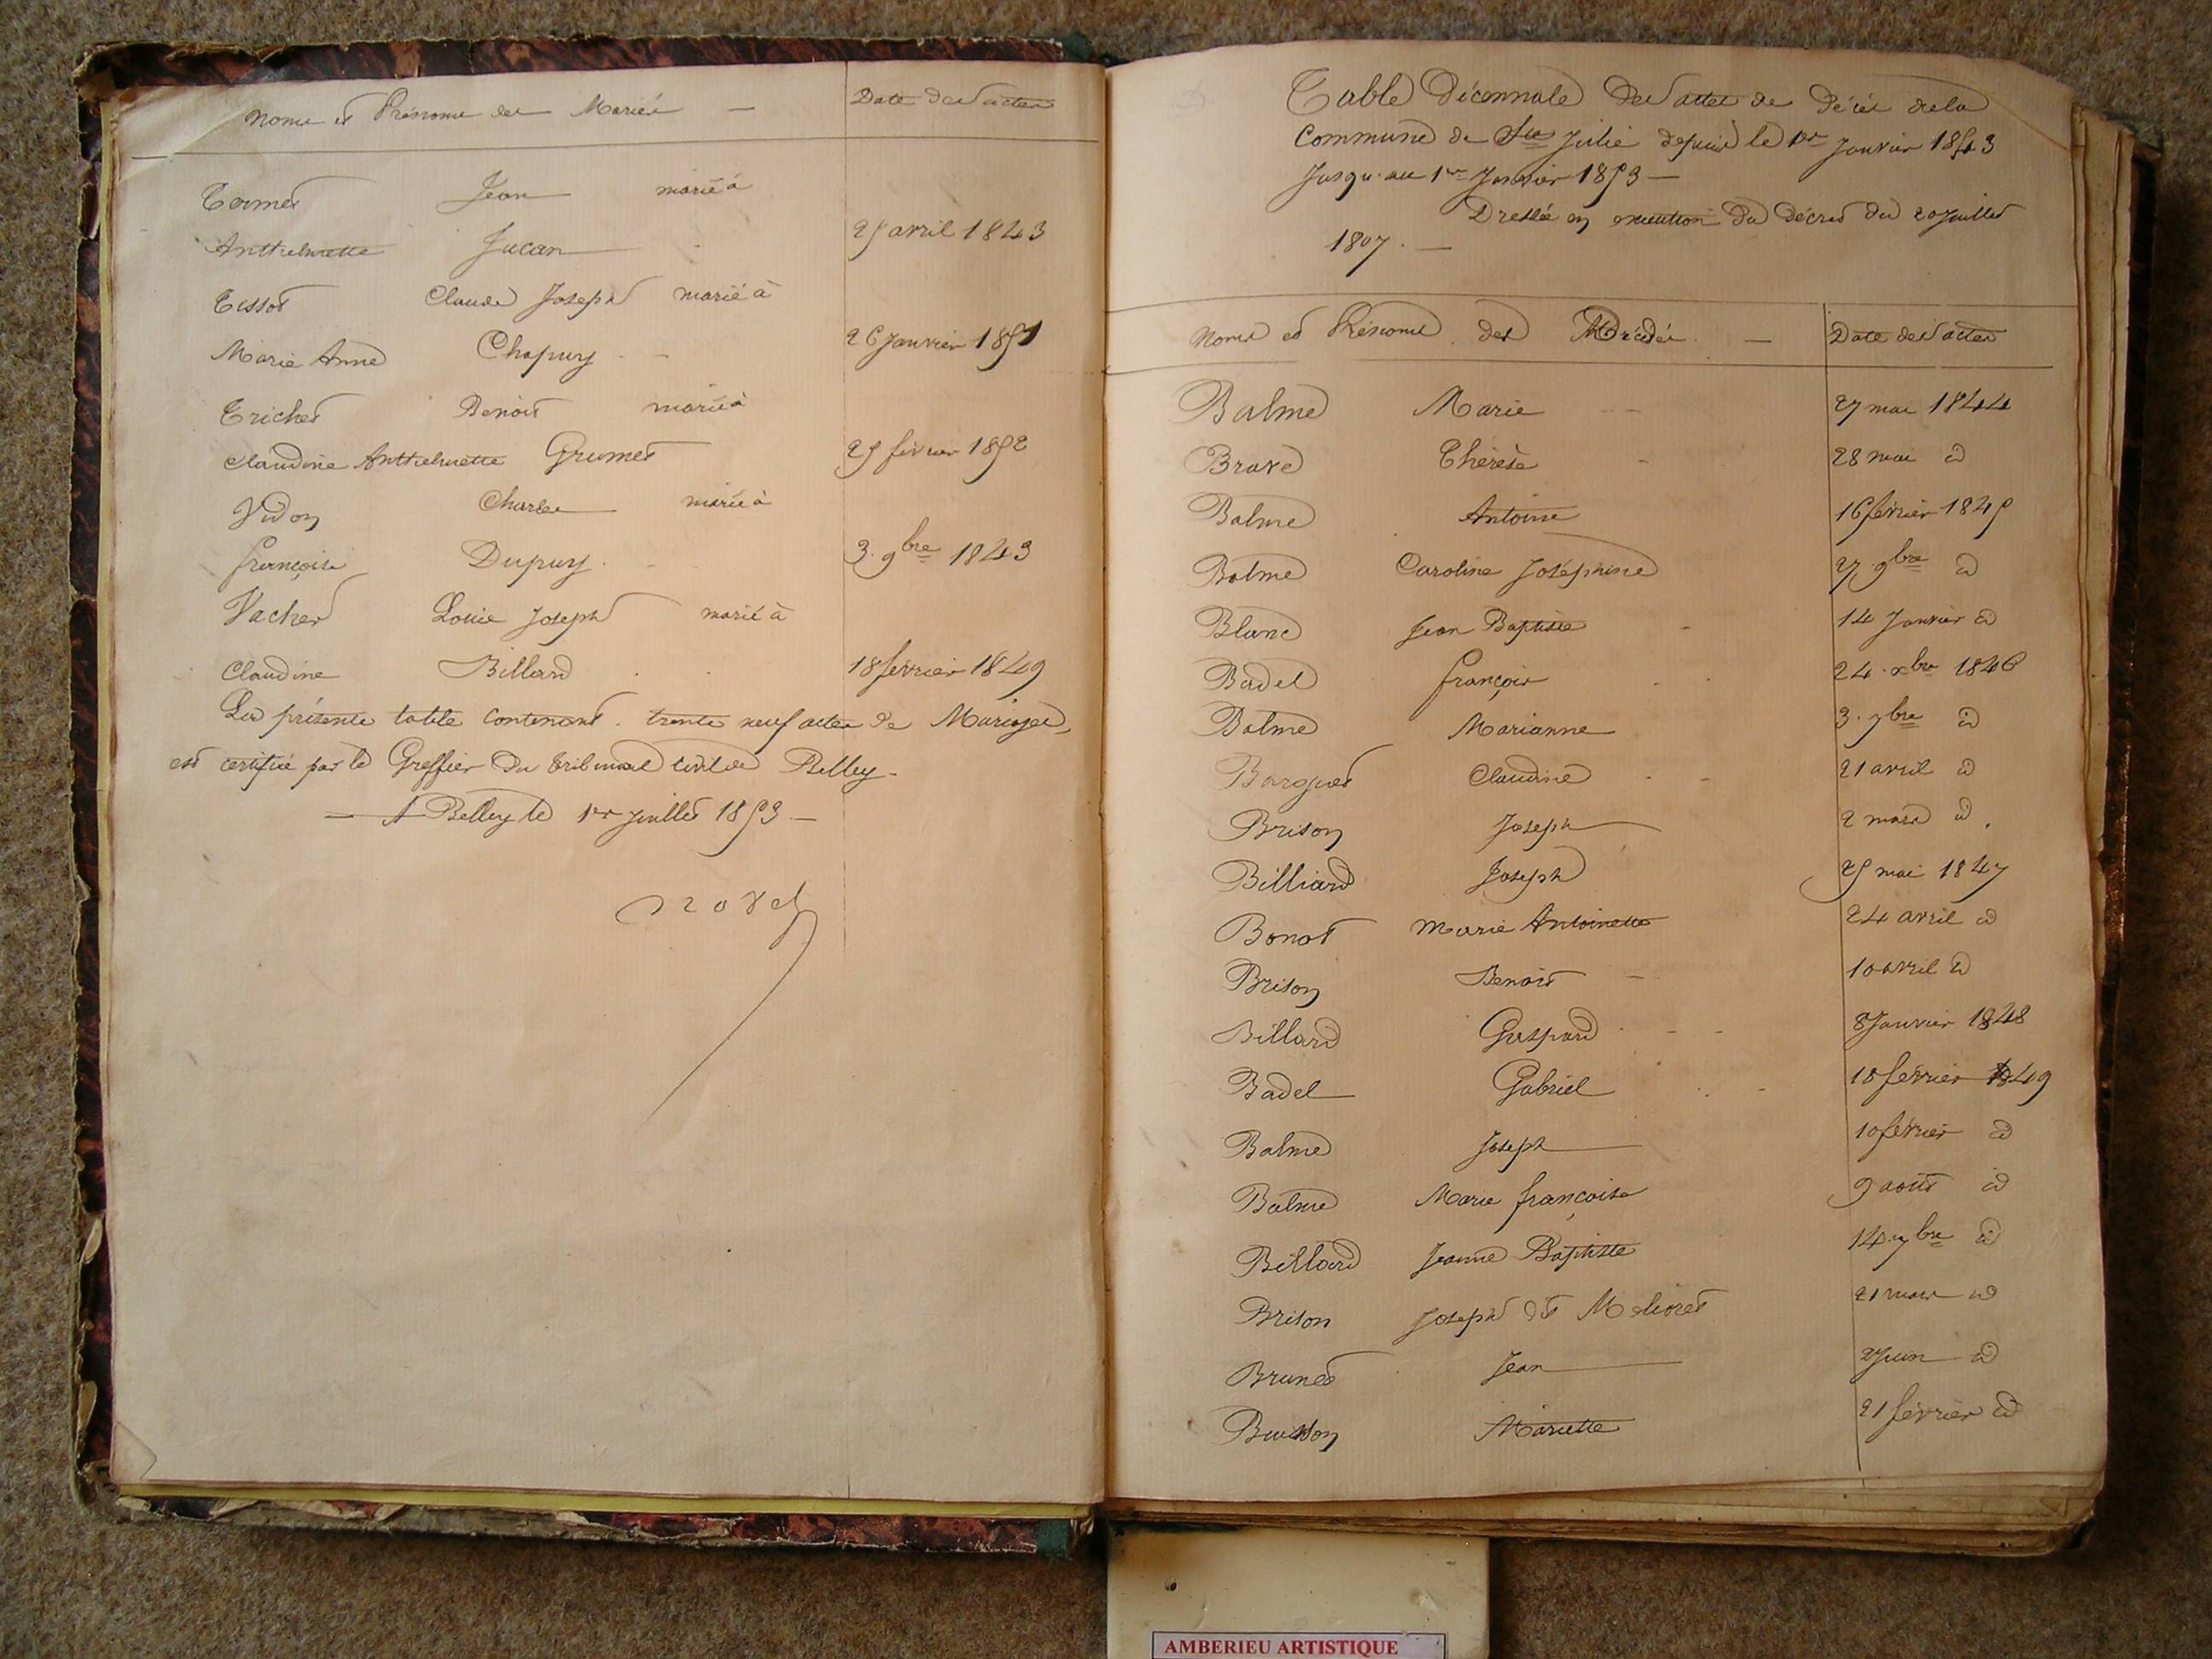 Noms et Prénoms des Mariés — Date des actes
Termet Jean marié à
Anthelmette Jucan 25 avril 1843
Tissot Claude Joseph marié à
Marie Anne Chapuy 26 Janvier 1851
Trichet Benoit marié à
Claudine Anthelmette Grumet 25 février 1852
Vidon Charles marié à
françoise Dupuy 3. 9bre 1843
Vacher Louis Joseph marié à
Claudine Billard 18 février 1849
La présente table contenant trente neuf actes de Mariages,
est certifiée par le Greffier du tribunal civil de Belley.
— A Belley le 1er Juillet 1853 —
Table Décennale des actes de Décès de la
Commune de Ste Julie depuis le 1er Janvier 1843
Jusqu'au 1er Janvier 1853 —
Dressée en exécution du Décret du 20 Juillet
1807. —
Noms et Prénoms des Décédés — Date des actes
Balme Marie 27 mai 1844
Brave Thérèse 28 mai id
Balme Antoine 16 février 1845
Balme Caroline Joséphine 27 9bre id
Blanc Jean Baptiste 14 Janvier id
Badel françois 24 xbre 1846
Balme Marianne 3. 7bre id
Claudine 21 avril id
Brison Joseph 2 mars id.
Billiard Joseph 25 mai 1847
Bonot Marie Antoinette 24 avril id
Brison Benoit 10 avril id
Billard Gaspard 8 Janvier 1848
Badel Gabriel 18 février 1849
Balme Joseph 10 février id
Balme Marie françoise 9 août id
Billard Jeanne Baptiste 14. 7bre id
Brison Joseph dit Melioret 21 mars id
Brunet Jean 2 Juin id
Buisson Mariette 21 février id
AMBERIEU ARTISTIQUE